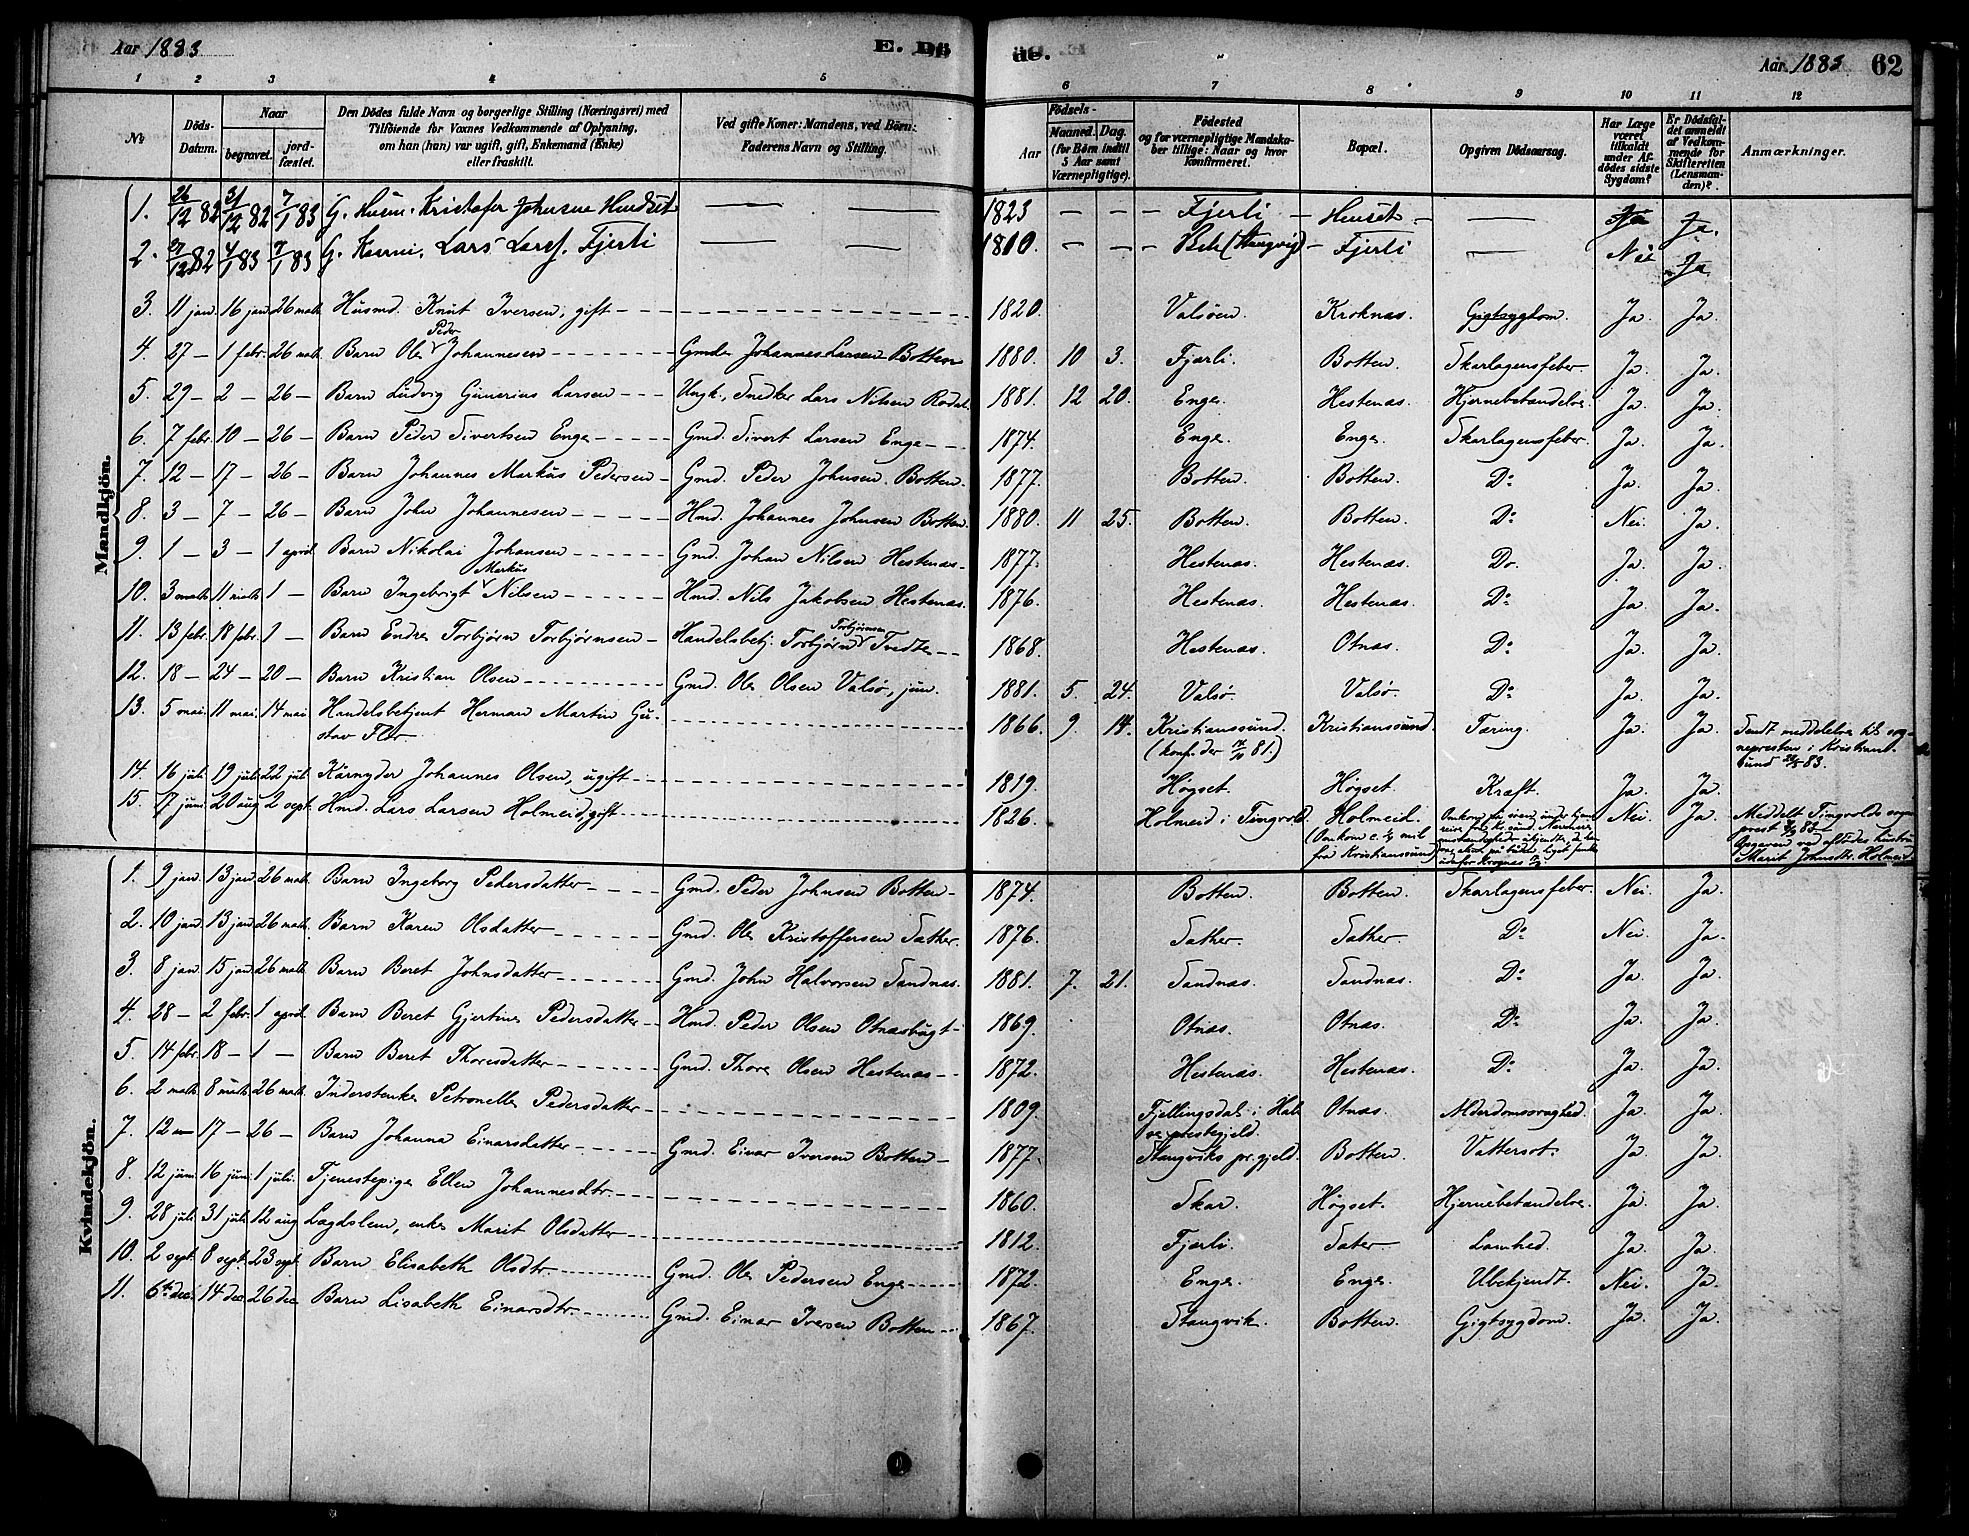 Aar 1883 E. Dö
de. Aar 1883 62
1 2 3 4 5
6 7 8 9 10 11 12
No Döds-Datum. Naar begravet. jordfæstet. Den Dödes fulde Navn og borgerlige Stilling (Næringsvei) med Tilföiende for Voxnes Vedkommende af Oplysning, om han (hun) var ugift, gift, Enkemand (Enke) eller fraskilt. Ved gifte Koner: Mandens, ved Börn: Faderens Navn og Stilling.
Födsels- Aar Maaned. Dag. (for Börn indtil 5 Aar samt Værnepligtige). Födested og for værnepligtige Mandskaber tillige: Naar og hvor konfirmeret. Bopæl. Opgiven Dödsaarsag. Har Læge været tilkaldt under Afdödes sidste Sygdom? Er Dödsfaldet anmeldt af Vedkommende for Skifteretten (Lensmanden)? Anmærkninger.
Mandkjön.
1. 26/12 82 31/12 82 7/1 83 G. Kristafer Johnsen 1823 — — Fjerli — Henset — — Ja Ja.
2. 27/12 82 4/1 83 7/1 83 G. Lars Lars. Fjerli 1810. — — (Stangvig) — Fjerli — Nei Ja
3. 11 jan. 16 jan 26 mars Husmd. Knut Iversen, gift 1820. Valsøen. Kroknæs. Gigtsygdom. Ja. Ja.
4. 27 — 1 febr. 26 mars Barn Ole Peder Johannesen Gmd. Johannes Larsen Botten 1880. 10 3. Fjærli. Botten. Skarlagensfeber Ja. Ja.
5. 29 — 2 — 26 — Barn Ludvig Gunerius Larsen Ungk., Snedker Lars Nilsen Rodal. 1881. 12 20. Enge. Hestenæs. Hjernebetændelse. Ja. Ja.
6. 7 febr. 10 — 26 — Barn Peder Sivertsen Enge Gmd. Sivert Larsen Enge 1874. Enge. Enge. Skarlagensfeber. Ja. Ja.
7. 12 — 17 — 26 — Barn Johannes Markus Pedersen Gmd. Peder Johnsen Botten. 1877. Botten. Botten. Do Ja. Ja.
8. 3 — 7 — 26 — Barn John Johannesen Hmd. Johannes Johnsen Botten. 1880. 11 25. Botten. Botten. Do Nei. Ja.
9. 1 — 3 — 1 april Barn Nikolai Johansen Gmd. Johan Nilsen Hestenæs 1877. Hestenæs. Hestenæs. Do. Ja. Ja.
10. 3 mars 11 mars 1 — Barn Ingebrigt Markus Nilsen Hmd. Nils Jakobsen Hestenæs. 1876. Hestenæs. Hestenæs. Do Ja. Ja.
11. 13 febr. 18 febr. 1 — Barn Endre Torbjørn Torbjørnsen Handelsbetj. Torbjørn Torbjørnsen Tvedte 1868. Hestenæs. Otnæs. Do Ja. Ja.
12. 18 — 24 — 20 — Barn Kristian Olsen Gmd. Ole Olsen Valsø, jun. 1881. 5. 24. Valsø. Valsø. Do Ja. Ja.
13. 5 mai. 11 mai. 14 mai Handelsbetjent Herman Martin Gu- 1866. 9. 14. Kristianssund. Kristianssund. Tæring. Ja. Ja. Sendt meddelelse til sog-
stav Flor. (konf. der 81.) nepresten i Kristians-
sund 83.
14. 16 juli 19 juli 22 juli Kårnyder Johannes Olsen, ugift 1819. Høgset. Høgset. Kræft. Ja. Ja.
15. 17 juni 20 aug 2 sept. Hmd. Lars Larsen Holmeid, gift 1826. Holmeid i Tingvold Holmeid. (Omkom c. ½ mil fra Kristianssund) Nei. Ja. Meddelt Tingvolds sogneprest 83 — Opgaven ved afdødes hustru Marit Johnsdtr. Holmeid.
Kvindekjön.
1. 9 jan. 13 jan 26 mars Barn Ingeborg Pedersdatter Gmd. Peder Johnsen Botten 1874. Botten. Botten. Skarlagensfeber. Nei. Ja.
2. 10 jan. 13 jan 26 mars Barn Karen Olsdatter Gmd. Ole Kristoffersen Sæther. 1876. Sæther. Sæther. Do Nei. Ja.
3. 8 jan. 15 jan 26 mars Barn Beret Johnsdatter Gmd. John Halvorsen Sandnæs. 1881. 7. 21. Sandnæs. Sandnæs. Do Ja. Ja.
4. 28 — 2 febr. 1 april Barn Beret Gjertine Pedersdatter Hmd. Peder Olsen Otnæsbugt 1869. Otnæs. Otnæs. Do Ja. Ja.
5. 14 febr. 18 — 1 — Barn Beret Thoresdatter Gmd. Thore Olsen Hestenæs 1872. Hestenæs. Hestenæs. Do Ja. Ja.
6. 2 mars 8 mars 26 mars Inderstenke Petronelle Pedersdatter 1809. Fjellingsdal i Hal- Otnæs. Alderdomssvaghed. Ja. Ja.
se prestegjeld.
7. 12 — 17 — 26 — Barn Johanna Einarsdatter Gmd. Einar Iversen Botten 1877. Stangviks pr.gjeld. Botten. Vattersot. Ja. Ja.
8. 12 juni 16 juni 1 juli. Tjenestepige Ellen Johannesdtr. 1860. Skar. Høgset. Hjernebetændelse. Ja. Ja.
9. 28 juli 31 juli 12 aug Lægdslem, enke Marit Olsdatter 1812. Fjærli. Sæter. Lamhed. Ja. Ja.
10. 2 sept. 8 sept. 23 sept. Barn Elisabeth Olsdtr. Gmd. Ole Pedersen Enge 1872. Enge. Enge. Ubekjendt. Nei. Ja.
11. 6te dec. 14 dec 26 dec Barn Lisabeth Einarsdtr. Gmd. Einar Iversen Botten 1867. Stangvik. Botten. Gigtsygdom. Ja. Ja.